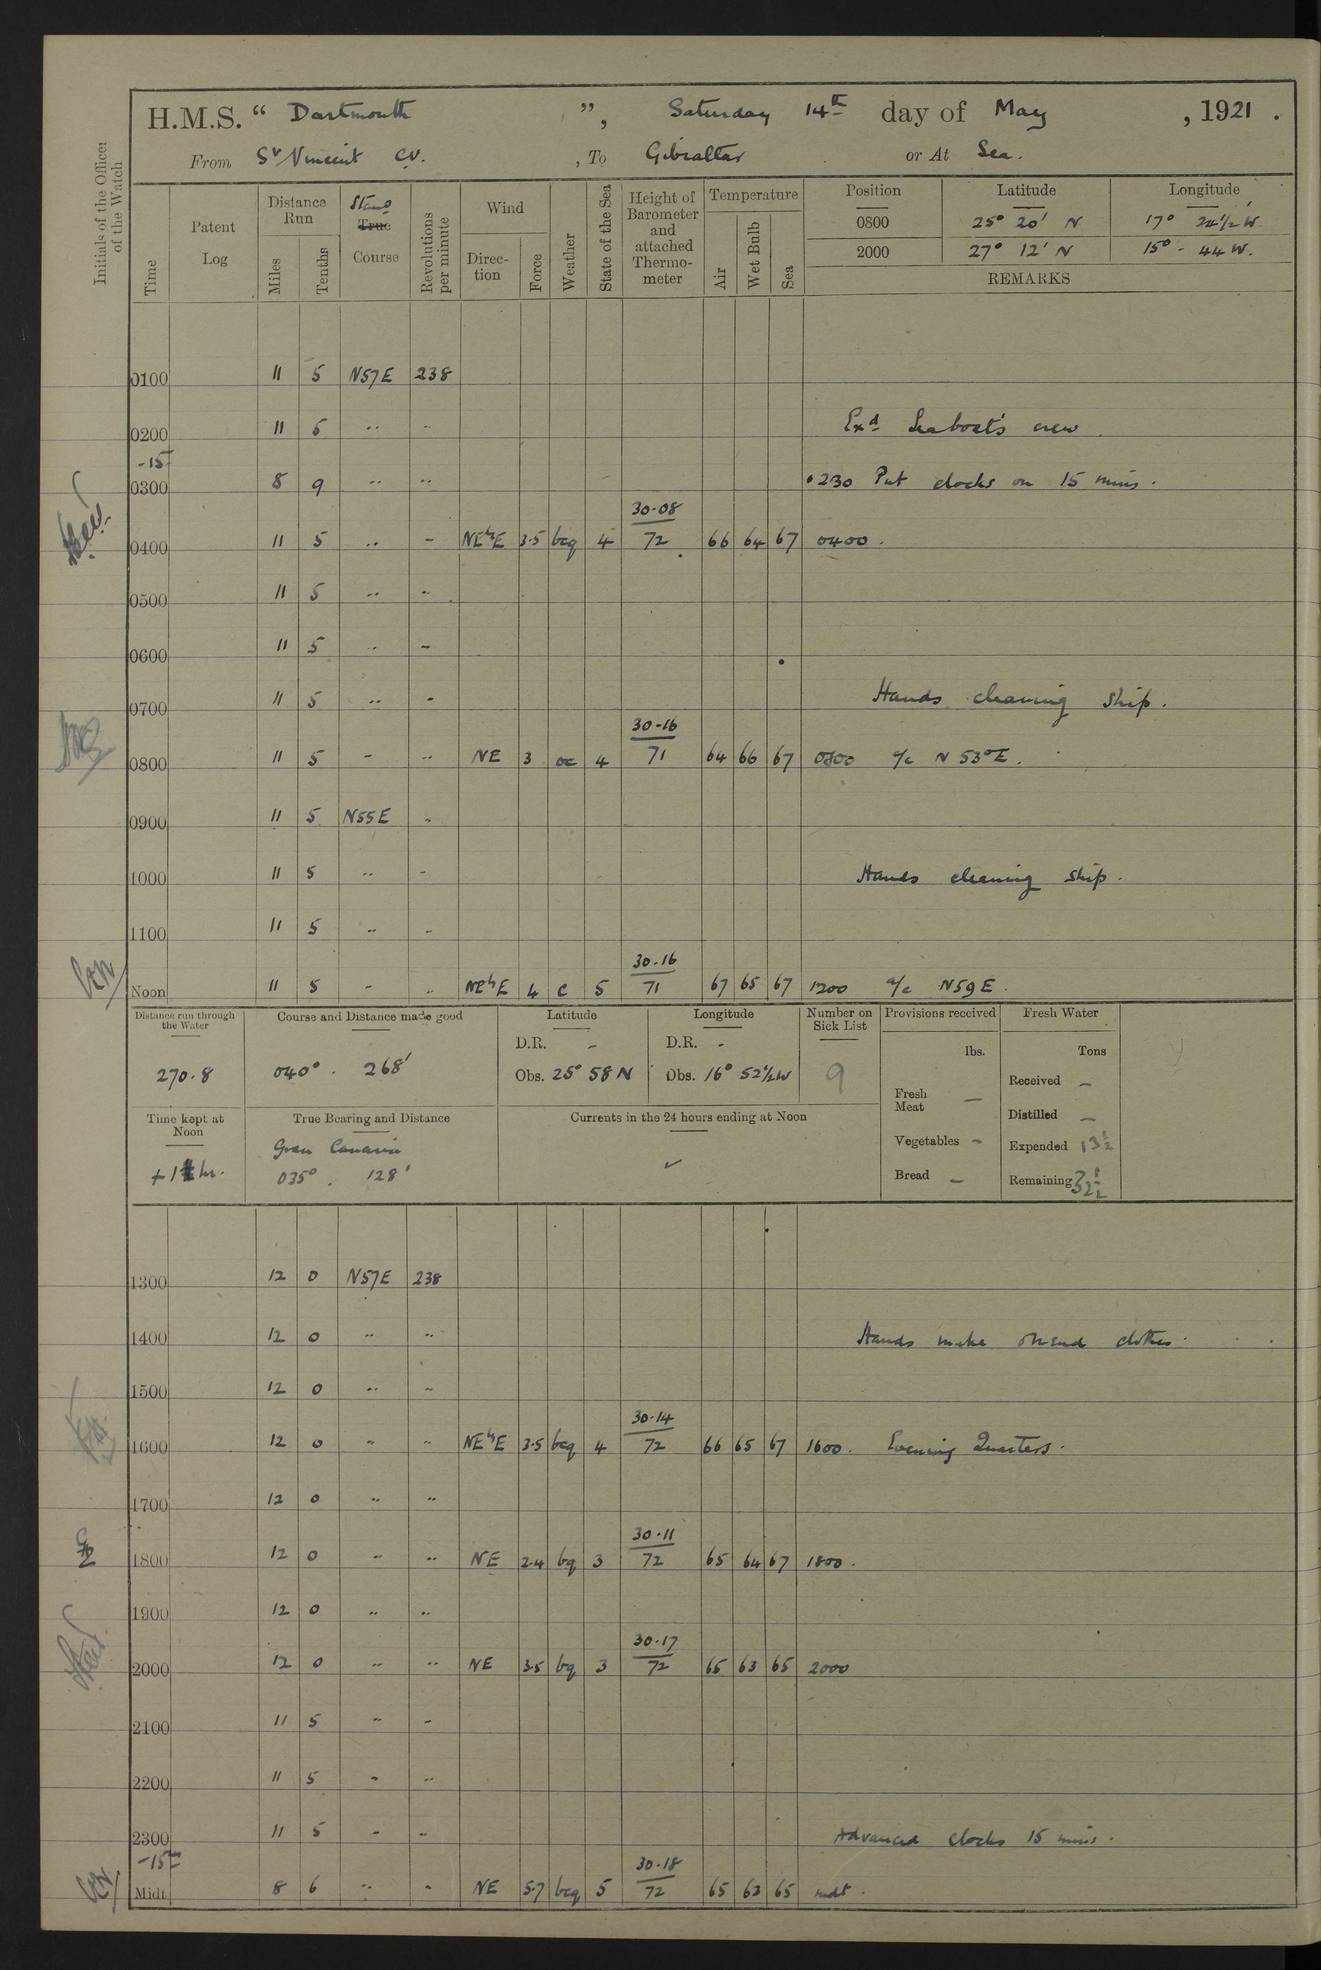 H.M.S. “ Dartmouth ”, Saturday 14th day of May , 1921 .
From St Vincent C.V. , To Gibraltar or At Sea.
Initials of the Officer of the Watch
Time Patent Log Distance Run Miles Tenths Stand True Course Revolutions per minute Wind Direction Force Weather State of the Sea Height of Barometer and attached Thermometer Temperature Air Wet Bulb Sea
Position Latitude Longitude
0800 25° 20' N 17° 24½ W
2000 27° 12' N 15° - 44 W.
REMARKS
0100 11 5 N57E 238
0200 11 5 .. .. Exd Seaboat's crew
-15
0300 8 9 .. .. 0230 Put clocks on 15 mins.
30.08
0400 11 5 .. - NE½E 3.5 bcq 4 72 66 64 67 0400.
0500 11 5 .. ..
0600 11 5 .. -
0700 11 5 .. - Hands cleaning ship.
30.16
0800 11 5 - .. NE 3 oc 4 71 64 66 67 0800 a/c N 53°E.
0900 11 5 N55E ..
1000 11 5 .. .. Hands cleaning ship.
1100 11 5 .. ..
30.16
Noon 11 5 - .. NE½E 4 c 5 71 67 65 67 1200 a/c N59E.
Distance run through the Water Course and Distance made good Latitude Longitude Number on Sick List Provisions received Fresh Water
D.R. - D.R. - lbs. Tons
270.8 040° . 268' Obs. 25° 58 N Obs. 16° 52½W 9
Fresh Meat - Received -
Time kept at Noon True Bearing and Distance Currents in the 24 hours ending at Noon Distilled -
Gran Canaria Vegetables - Expended 13½
+1 hr. 035° . 128' Bread - Remaining 32½
1300 12 0 N57E 238
1400 12 0 .. .. Hands make & mend clothes.
1500 12 0 .. ..
30.14
1600 12 0 .. .. NE½E 3.5 bcq 4 72 66 65 67 1600. Evening Quarters.
1700 12 0 .. ..
30.11
1800 12 0 .. .. NE 2.4 bq 3 72 65 64 67 1800.
1900 12 0 .. ..
30.17
2000 12 0 .. .. NE 3.5 bq 3 72 65 63 65 2000
2100 11 5 .. -
2200 11 5 - ..
2300 11 5 - .. Advanced clocks 15 mins.
-15m 30.18
Midt 8 6 .. - NE 5.7 bcq 5 72 65 63 65 midt.